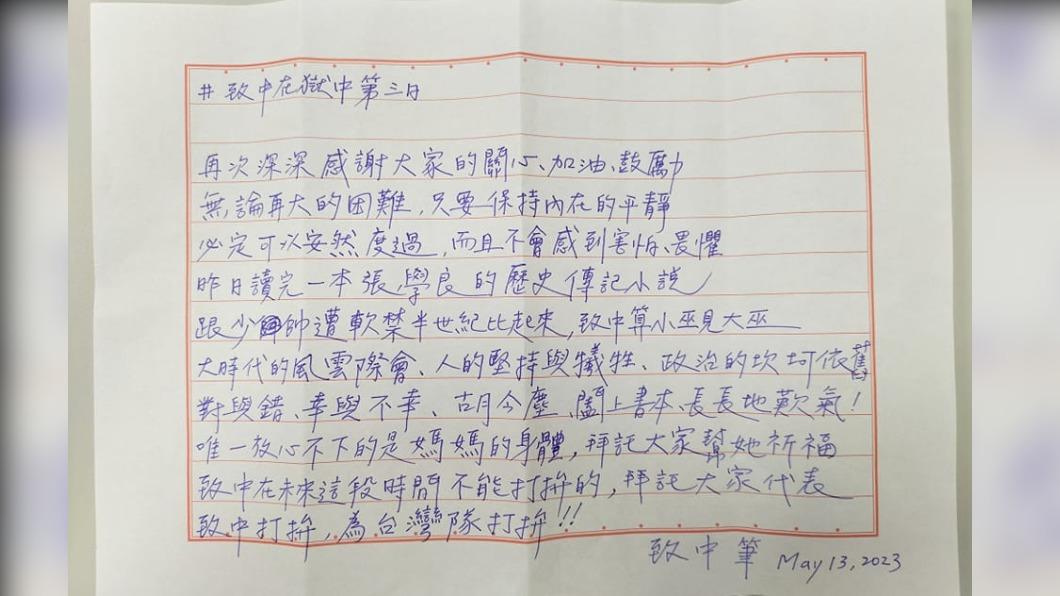 # 致中在獄中第三日
再次深深感謝大家的關心、加油、鼓勵
無論再大的困難，只要保持內在的平靜
必定可以安然度過，而且不會感到害怕、畏懼
昨日讀完一本張學良的歷史傳記小說
跟少帥遭軟禁半世紀比起來，致中算小巫見大巫
大時代的風雲際會、人的堅持與犧牲、政治的坎坷依舊
對與錯、幸與不幸、古月今塵、闔上書本、長長地歎氣！
唯一放心不下的是媽媽的身體，拜託大家幫她祈福
致中在未來這段時間不能打拚的，拜託大家代表
致中打拚，為台灣隊打拚!!
致中筆 May 13, 2023